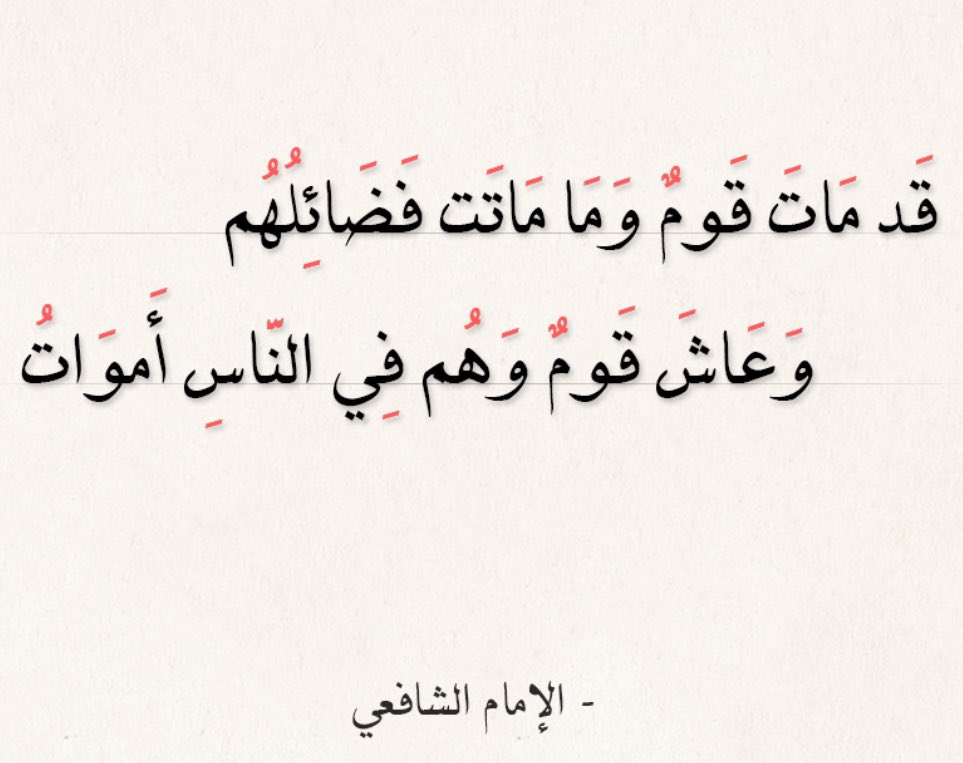 قَد مَاتَ قَومٌ وَمَا مَاتَت فَضَائِلُهُم
وَعَاشَ قَومٌ وَهُم فِي النَّاسِ أَموَاتُ
- الإمام الشافعي